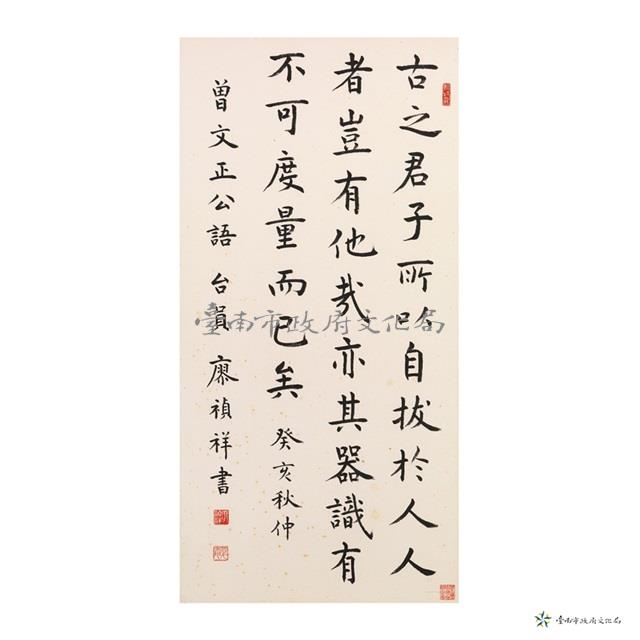 古之君子所以自拔於人人
者豈有他哉亦其器識有
不可度量而已矣 癸亥秋仲
曾文正公語 台員 廖禎祥書
臺南市政府文化局
臺南市政府文化局